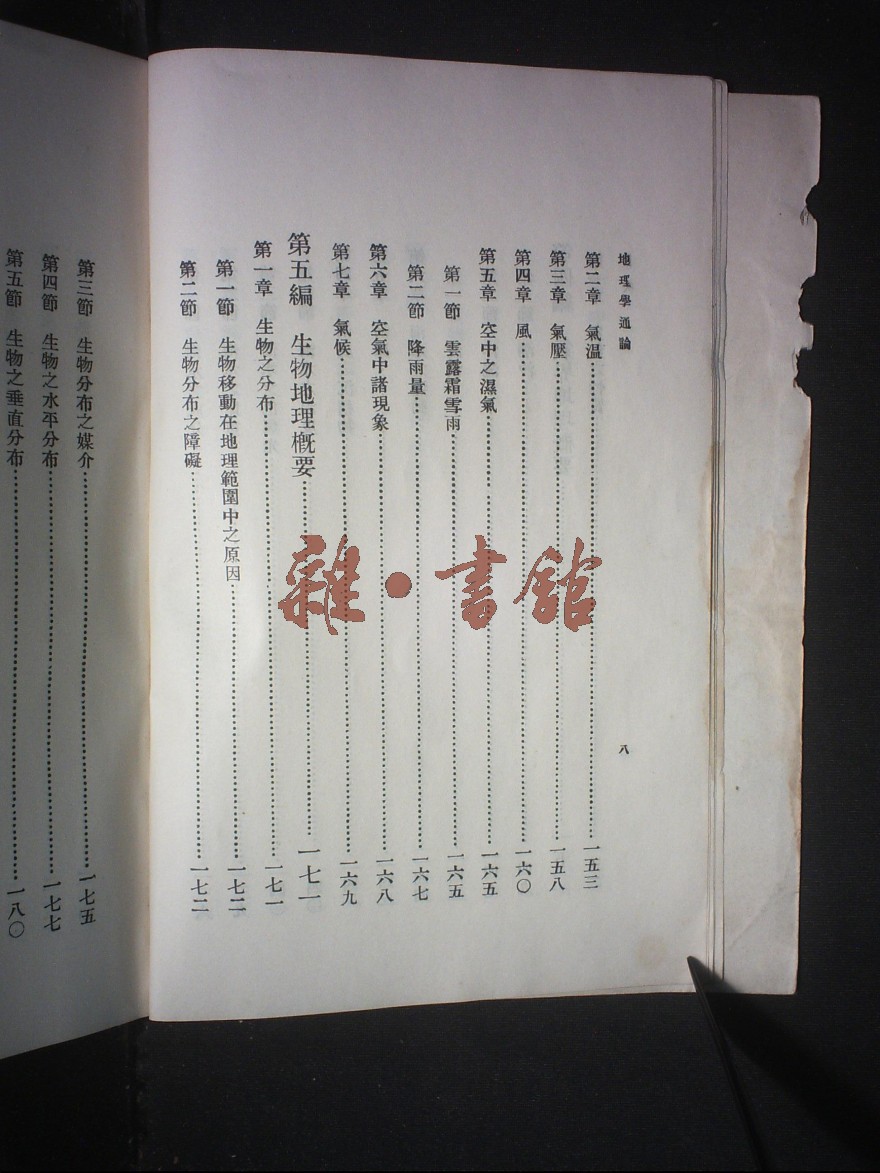 地理學通論
八
第二章 氣温……一五三
第三章 氣壓……一五八
第四章 風……一六〇
第五章 空中之濕氣……一六五
第一節 雲露霜雪雨……一六五
第二節 降雨量……一六七
第六章 空氣中諸現象……一六八
第七章 氣候……一六九
第五編 生物地理概要……一七一
第一章 生物之分布……一七一
第一節 生物移動在地理範圍中之原因……一七二
第二節 生物分布之障礙……一七二
第三節 生物分布之媒介……一七五
第四節 生物之水平分布……一七七
第五節 生物之垂直分布……一八〇
雜·書館